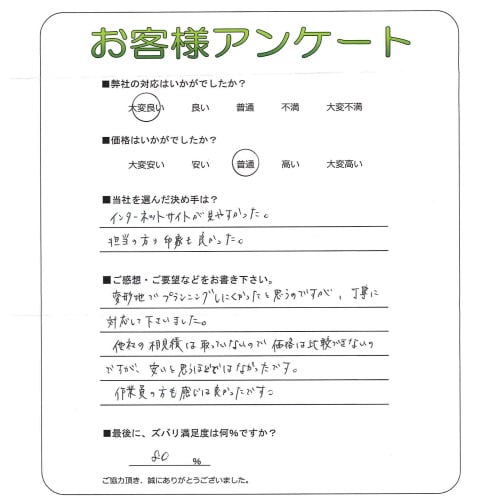 お客様アンケート
■弊社の対応はいかがでしたか？
大変良い 良い 普通 不満 大変不満
■価格はいかがでしたか？
大変安い 安い 普通 高い 大変高い
■当社を選んだ決め手は？
インターネットサイトが見やすかった。
担当の方の印象も良かった。
■ご感想・ご要望などをお書き下さい。
変形地でプランニングしにくかったと思うのですが、丁寧に
対応して下さいました。
他社の相見積は取っていないので価格は比較できないの
ですが、安いと思うほどではなかったです。
作業員の方も感じは良かったです。
■最後に、ズバリ満足度は何％ですか？
80 ％
ご協力頂き、誠にありがとうございました。